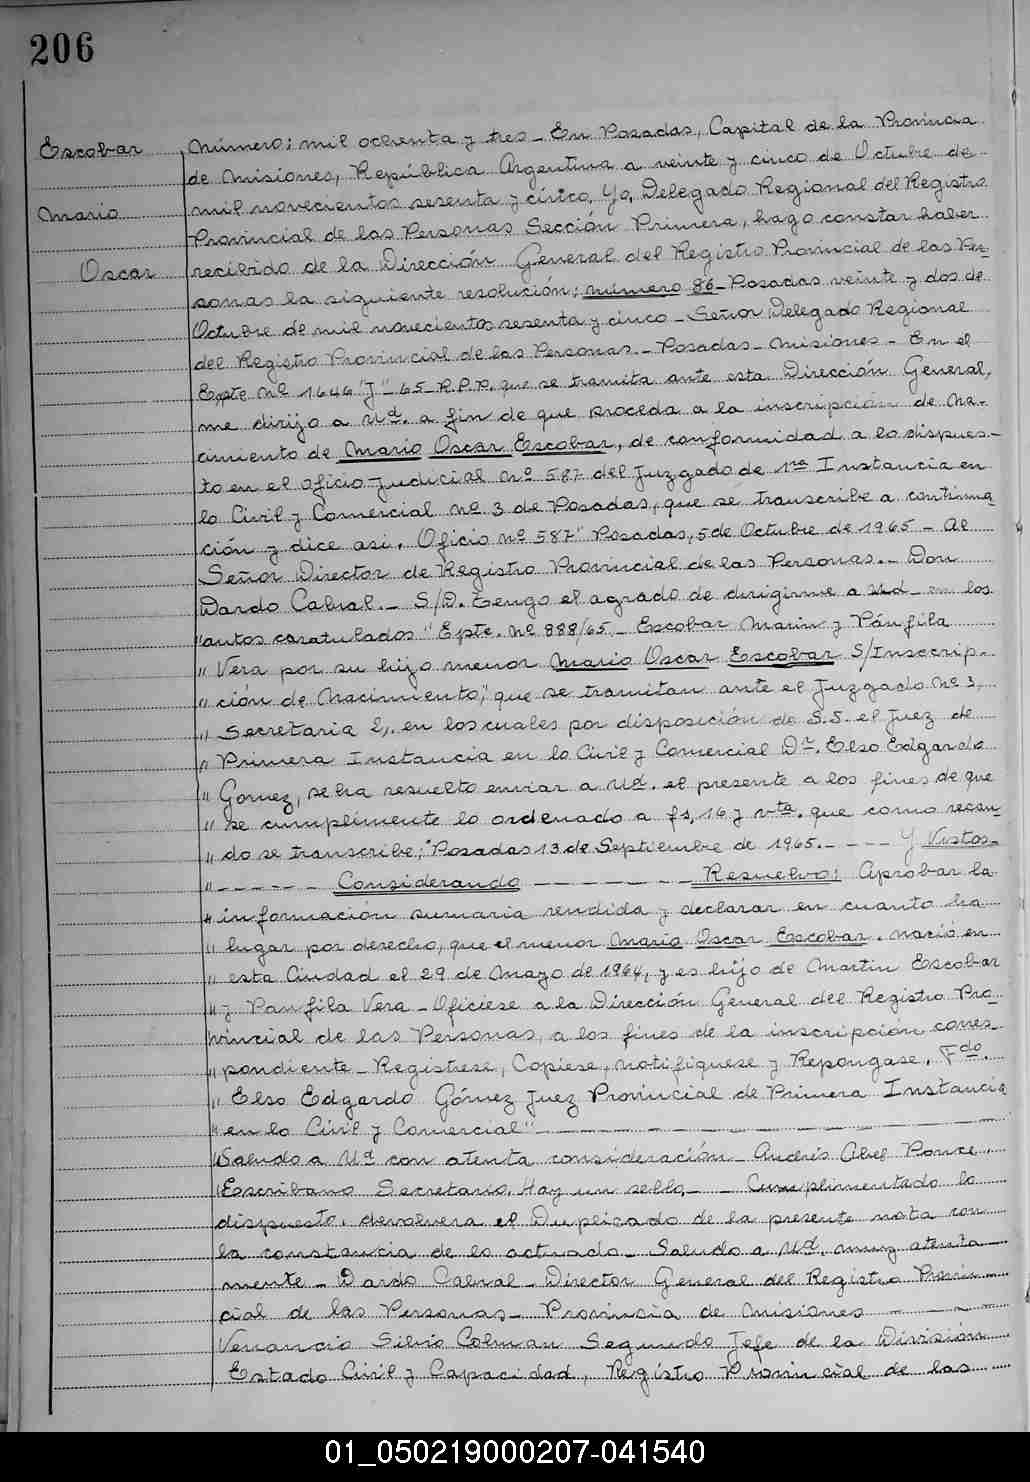 206
Escobar
Mario
Oscar
Número; mil ochenta y tres - En Posadas, Capital de la Provincia
de Misiones, República Argentina a veinte y cinco de Octubre de
mil novecientos sesenta y cinco, Yo, Delegado Regional del Registro
Provincial de las Personas Sección Primera, hago constar haber
recibido de la Dirección General del Registro Provincial de las Per-
sonas la siguiente resolución; número 86 - Posadas veinte y dos de
Octubre de mil novecientos sesenta y cinco - Señor Delegado Regional
del Registro Provincial de las Personas. - Posadas - Misiones - En el
Expte Nº 1646 "J" - 65 - R.P.P. que se tramita ante esta Dirección General,
me dirijo a Ud. a fin de que proceda a la inscripción de na-
cimiento de Mario Oscar Escobar, de conformidad a lo dispues-
to en el oficio Judicial Nº 587 del Juzgado de 1ra Instancia en
lo Civil y Comercial Nº 3 de Posadas, que se transcribe a continua
ción y dice asi. Oficio Nº 587" Posadas, 5 de Octubre de 1965 - Al
Señor Director de Registro Provincial de las Personas. - Don
Dardo Cabral. - S/D. Tengo el agrado de dirigirme a Ud - en los
"autos caratulados "Epte. Nº 888/65 - Escobar Martin y Pánfila
" Vera por su hijo menor Mario Oscar Escobar S/Insccrip-
" ción de Nacimiento," que se tramitan ante el Juzgado Nº 3,
" Secretaria 2, en los cuales por disposición de S.S. el Juez de
" Primera Instancia en lo Civil y Comercial Dr. Elso Edgardo
" Gomez, se ha resuelto enviar a Ud. el presente a los fines de que
" se cumplimente lo ordenado a fs, 16 y vta. que como recau-
" do se transcribe; "Posadas 13 de Septiembre de 1965. - - - - Y Vistos -
" - - - - - - Considerando - - - - - - - - Resuelvo: Aprobar la
" información sumaria rendida y declarar en cuanto ha
" lugar por derecho, que el menor Mario Oscar Escobar. nació en
" esta Ciudad el 29 de Mayo de 1964, y es hijo de Martin Escobar
" y Panfila Vera - Oficiese a la Dirección General del Registro Pro-
"vincial de las Personas, a los fines de la inscripción corres-
" pondiente - Registrese, Copiese, notifiquese y Repongase. Fdo.
" Elso Edgardo Gómez Juez Provincial de Primera Instancia
" en lo Civil y Comercial"
"Saludo a Ud con atenta consideración - Andrés Abel Ponce.
"Escribano Secretario. Hay un sello, - - Cumplimentado lo
dispuesto. devolvera el Duplicado de la presente nota con
la constancia de lo actuado - Saludo a Ud. muy atenta -
mente - Dardo Cabral - Director General del Registro Provin-
cial de las Personas - Provincia de Misiones
Venancio Silvio Colman Segundo Jefe de la División
Estado Civil y Capacidad, Registro Provincial de las
01_050219000207-041540